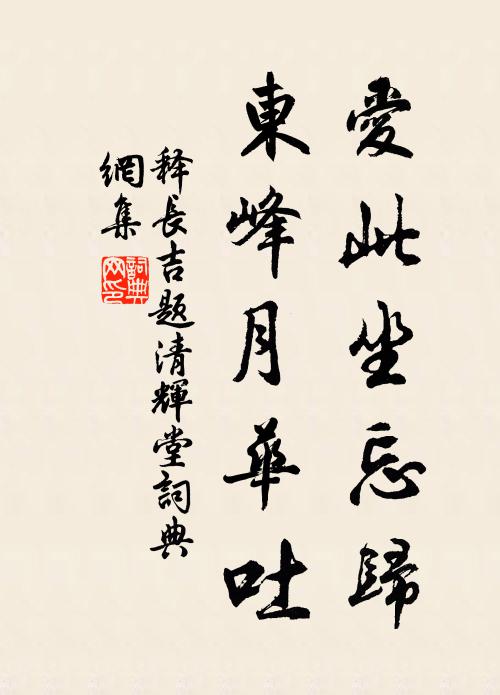 愛此坐忘歸
東峰月華吐
释長吉題清輝堂詞典
網集
詞典
网印